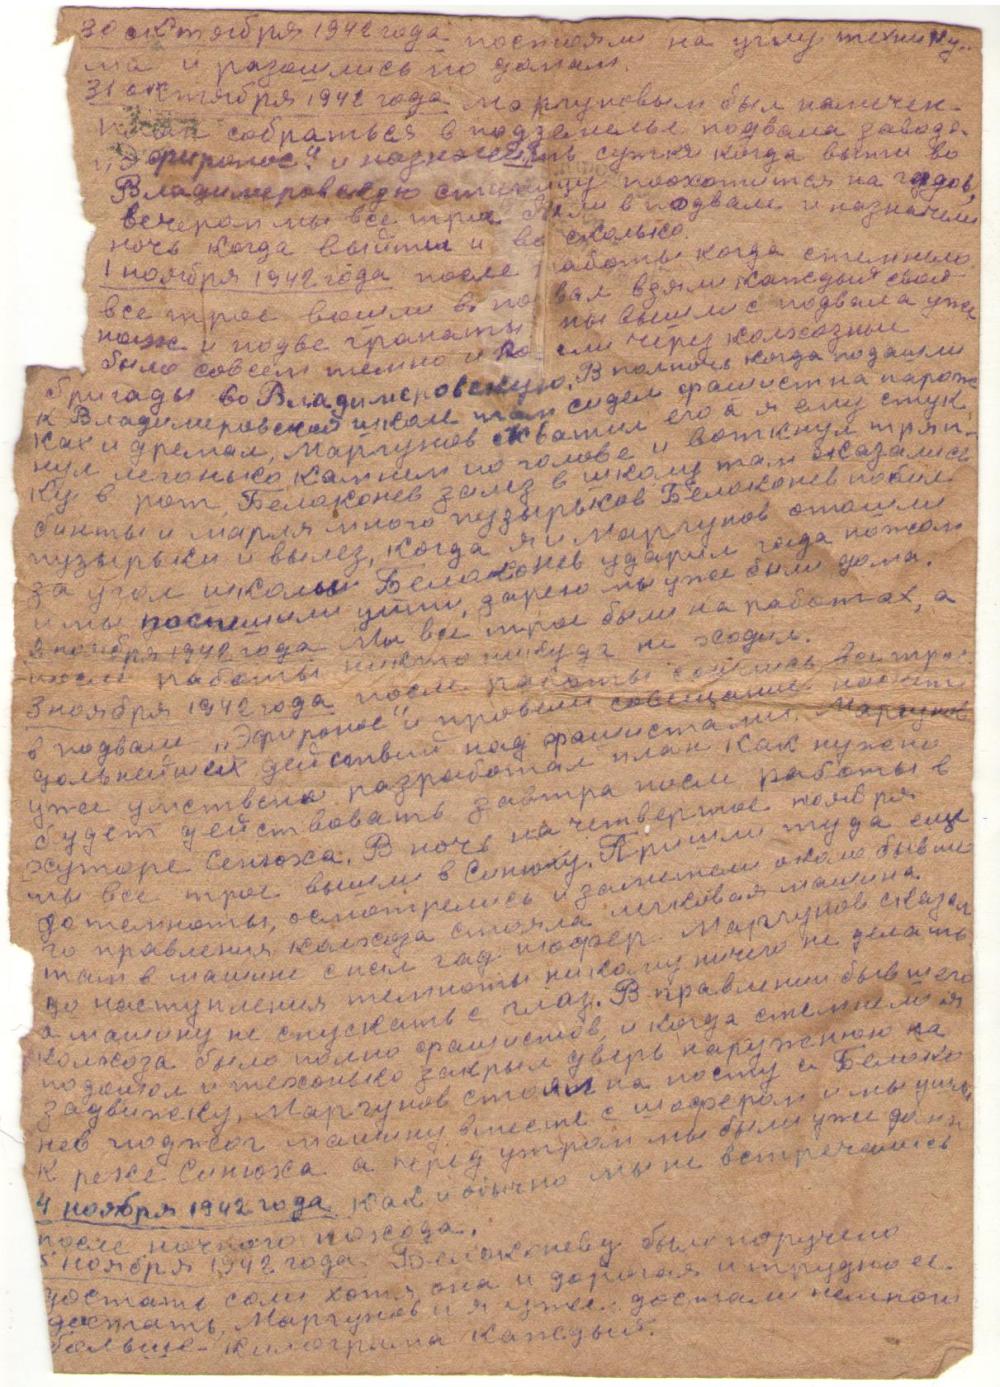 30 октября 1942 года постояли на углу технику-
ма и разошлись по домам.
31 октября 1942 года Моргуновым был намечен
план собраться в подземелье подвала заводе
„Эфиронос" и назначить сутки когда выйти во
Владимеровскую станицу поохотится на гадов,
вечером мы все трое в подвале и назначили
ночь когда выйти и во сколько.
1 ноября 1942 года после работы когда стемнело
все трое вошли в подвал взяли каждый свой
нож и подве гранаты мы вышли с подвала уже
было совсем темно и пошли через колхозные
бригады во Владимеровскую. В полночь когда подошли
к Владимеровской школе там сидел фашист на парож
ках и дремал, Моргунов схватил его а я ему стук
нул легонько камнем по голове и воткнул тряп-
ку в рот, Белоконев залез в школу там оказались
бинты и марля много пузырьков Белоконев побил
пузырьки и вылез, когда я и Моргунов отошли
за угол школы Белоконев ударил гада ножом
и мы поспешили уйти, зарею мы уже были дома.
2 ноября 1942 года Мы все трое были на работах, а
после работы никто никуда не ходил.
3 ноября 1942 года после работы сошлись все трое
в подвале „Эфиронос" и провели совещание насчет
дальнейших действий над фашистами. Моргунов
уже умственно разработал план как нужно
будет действовать завтра после работы в
хуторе Синюха. В ночь на четвертое ноября
мы все трое вышли в Синюху. Пришли туда еще
до темноты, осмотрелись и заметили около бывше
го правления колхоза стояла легковая машина
там в машине спал гад шофер. Моргунов сказал
до наступления темноты никому ничего не делать
а машину не спускать с глаз. В правлении бывшего
колхоза было полно фашистов, и когда стемнело я
подошол и тихонько закрыл дверь наружнюю на
задвижку, Моргунов стоял на посту а Белоко
нев поджог машину вместе с шофером и мы ушли
к реке Синюха а перед утром мы были уже дома
4 ноября 1942 года как и обычно мы не встречались
после ночного похода.
5 ноября 1942 года. Белоконеву было поручено
достать соли хотя она и дорогая и трудно ее
достать, Моргунов и я уже достали немного
больше килограма каждый.